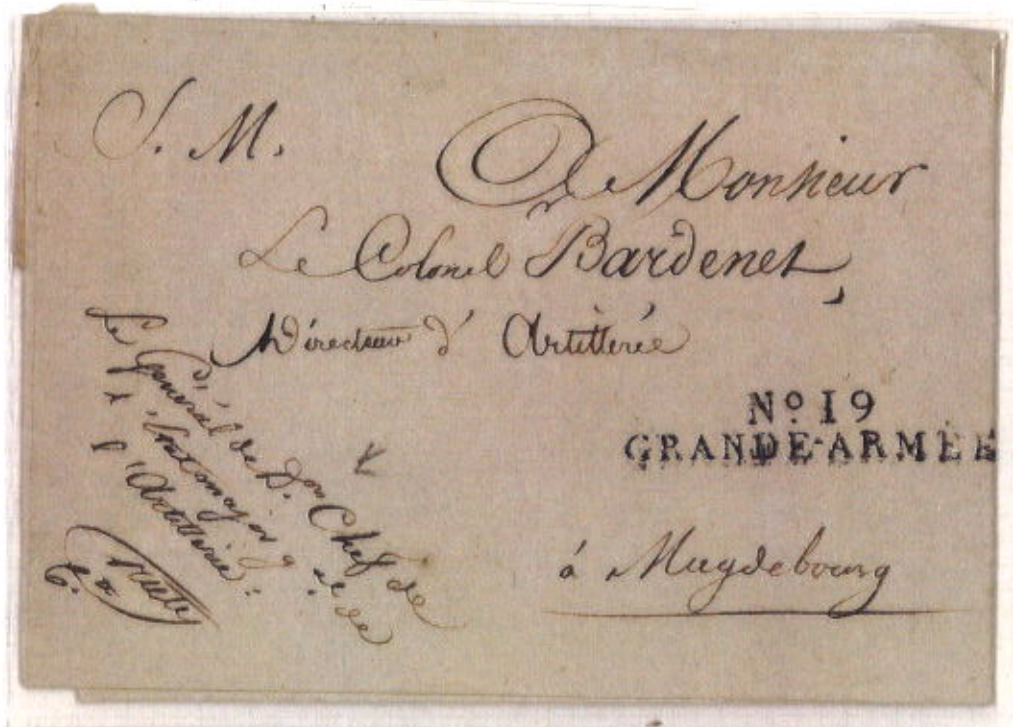 S. M.
A Monsieur
Le Colonel Bardenet,
Directeur d' Artillerie
Nº 19
GRANDE-ARMÉE
á Magdebourg
Le Général de Don Chef de
l'Etatmajor g.al de
l'Artillerie: